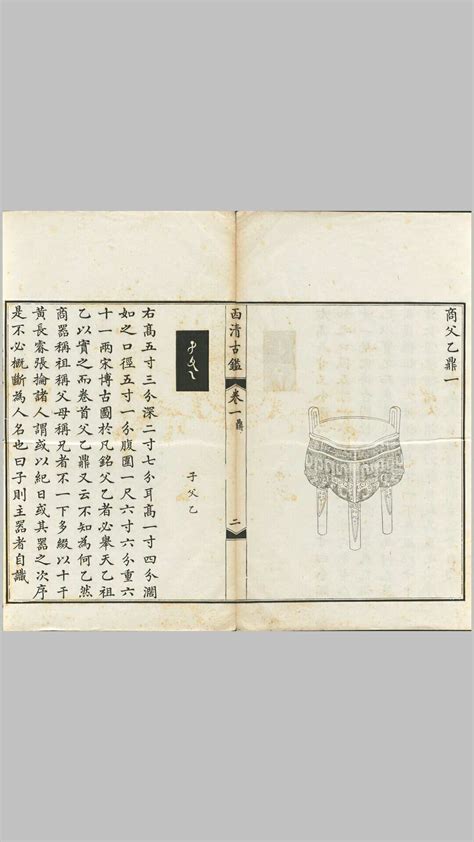 商父乙鼎一
西清古鑑
卷一 鼎
二
子父乙
右高五寸三分深二寸七分耳高一寸四分濶
如之口徑五寸一分腹圍一尺六寸六分重六
十一兩宋博古圖於凡銘父乙者必舉天乙祖
乙以實之而卷首父乙鼎又云不知為何乙然
商器稱祖稱父母稱兄者不一下多綴以十干
黃長睿張掄諸人謂或以紀日或其器之次序
是不必概斷為人名也曰子則主器者自識